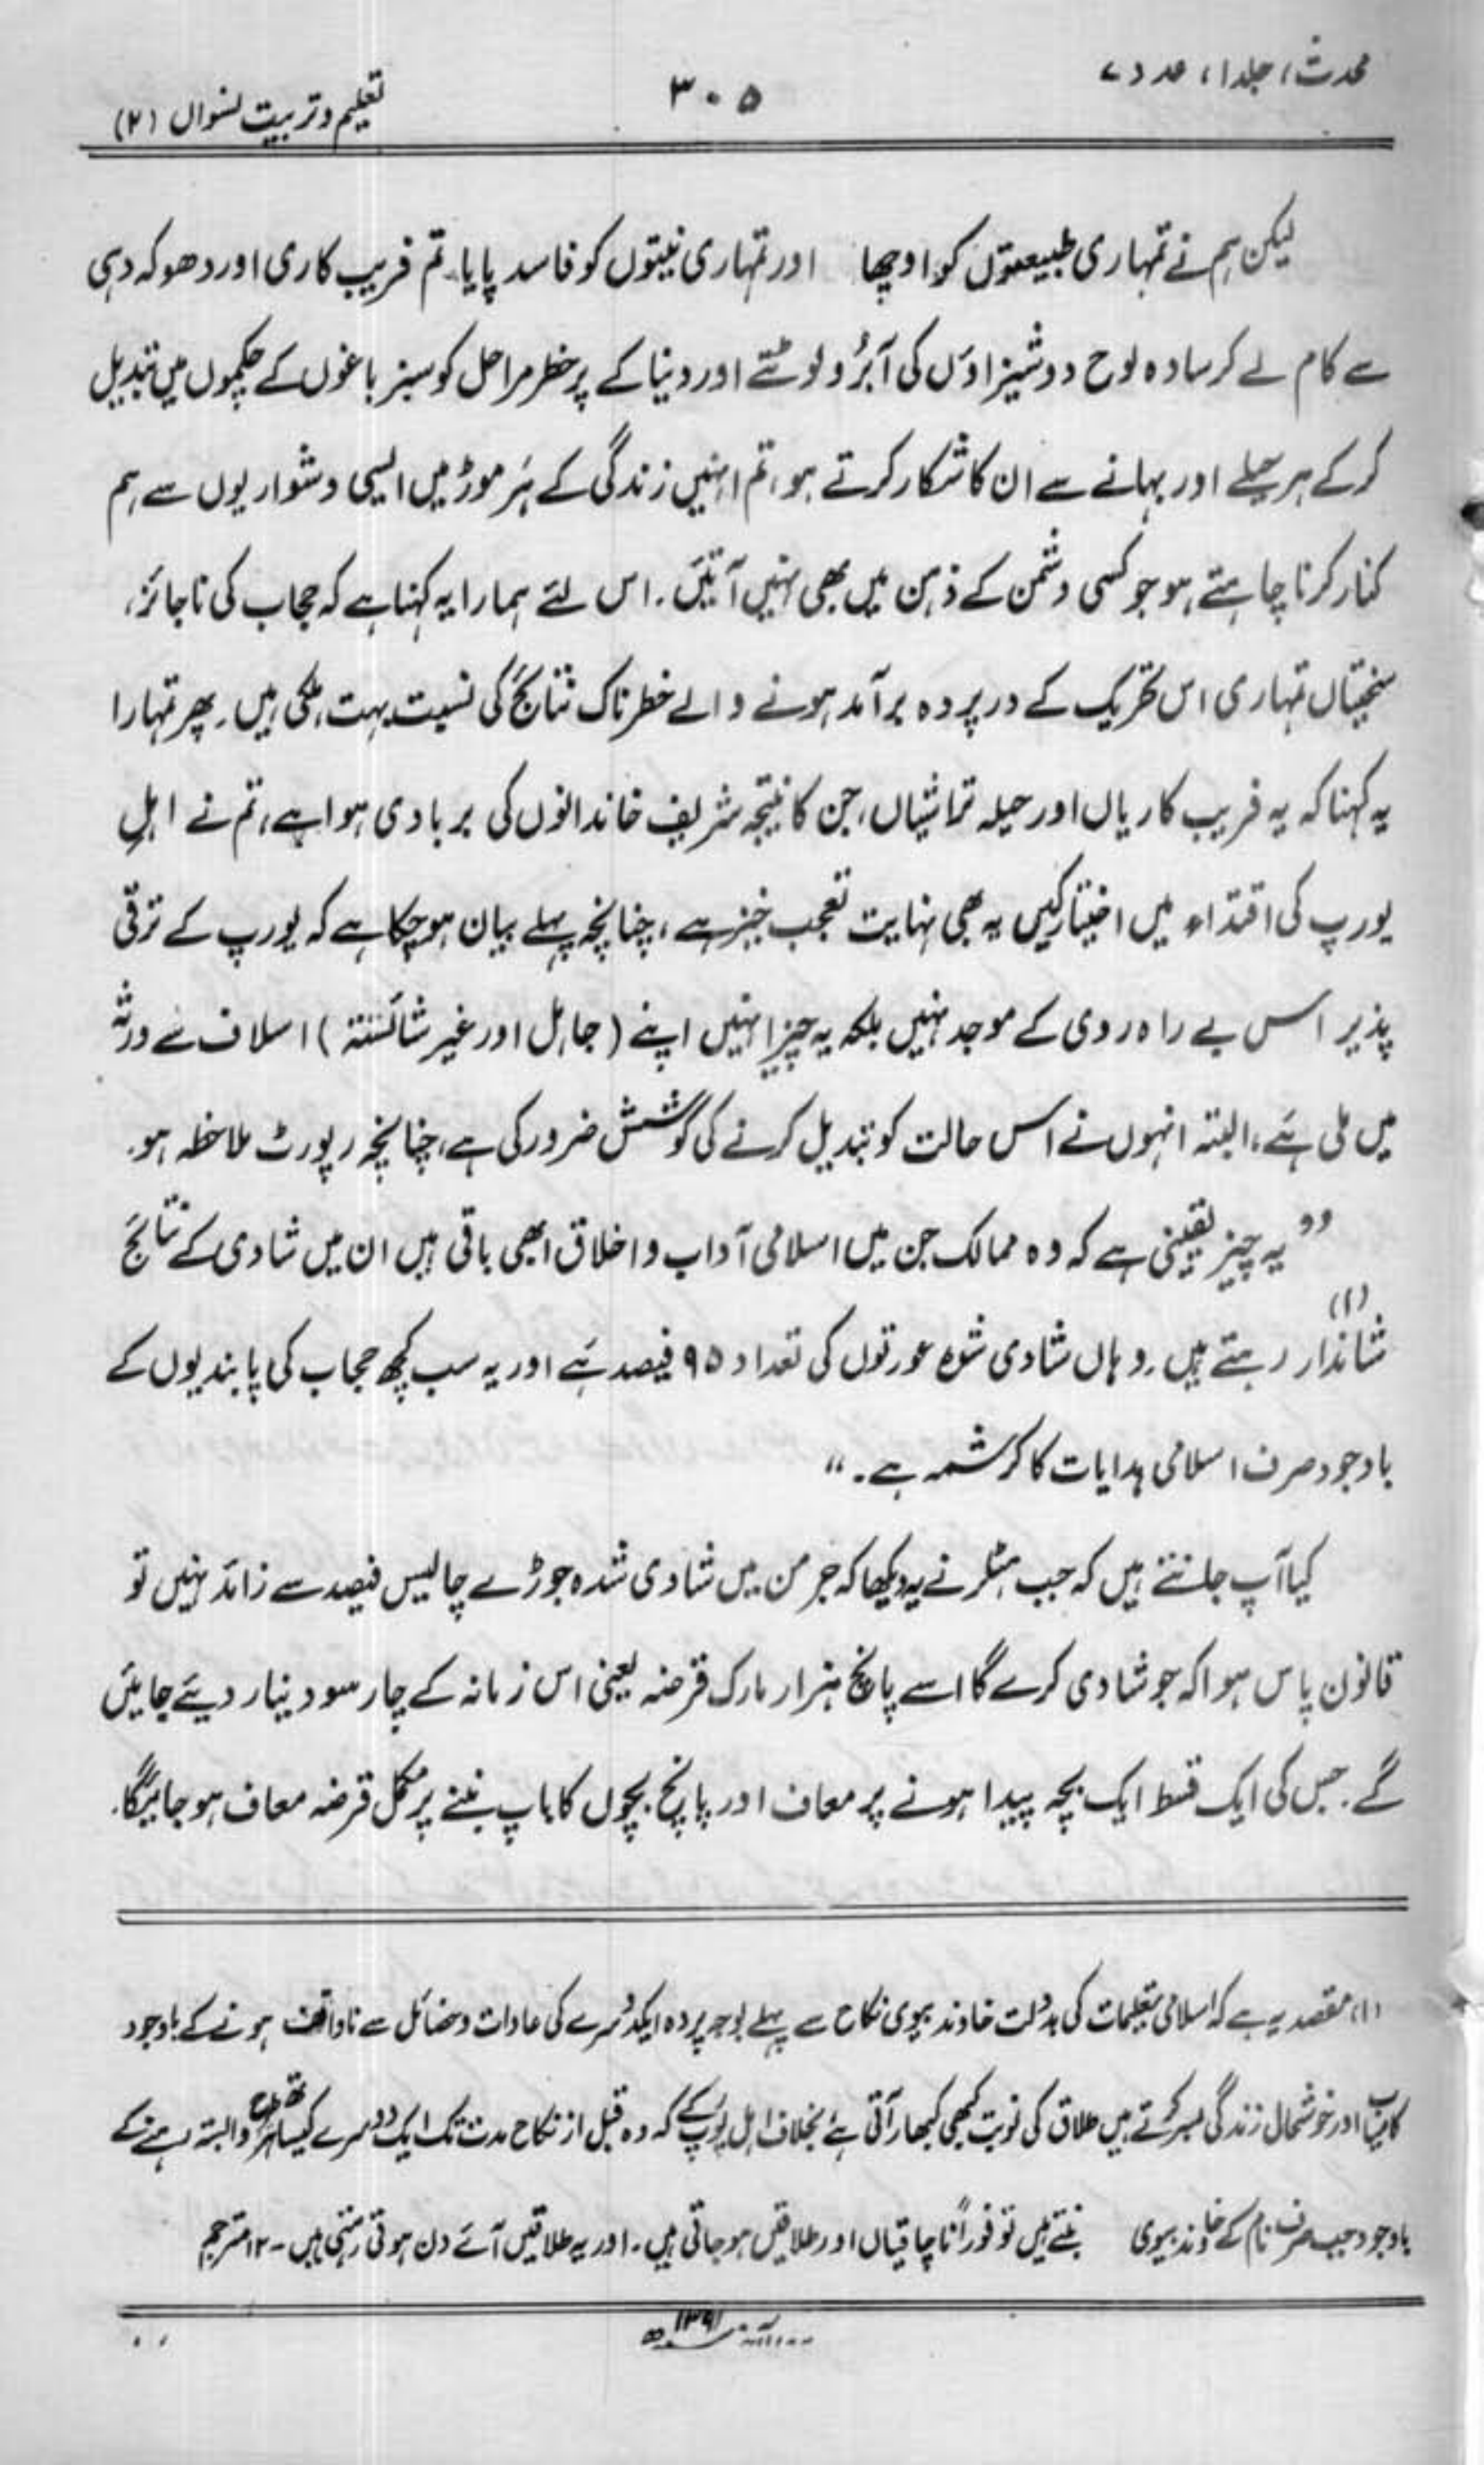 محدث، جلد ۱، عدد ۷
۳۰۵
تعلیم و تربیت نسواں (۲)
لیکن ہم نے تمہاری طبیعتوں کو اوچھا اور تمہاری نیتوں کو فاسد پایا۔ تم فریب کاری اور دھوکہ دہی
سے کام لے کر سادہ لوح دوشیزاؤں کی آبرُو لوٹتے اور دنیا کے پرخطر مراحل کو سبز باغوں کے چکموں میں تبدیل
کر کے ہر حیلے اور بہانے سے ان کا شکار کرتے ہو، تم انہیں زندگی کے ہَر موڑ میں ایسی دشواریوں سے ہم
کنار کرنا چاہتے ہو جو کسی دشمن کے ذہن میں بھی نہیں آتیں۔ اس لئے ہمارا یہ کہنا ہے کہ حجاب کی ناجائز،
سختیاں تمہاری اس تحریک کے درپردہ برآمد ہونے والے خطرناک نتائج کی نسبت بہت ہلکی ہیں۔ پھر تمہارا
یہ کہنا کہ یہ فریب کاریاں اور حیلہ تراشیاں، جن کا نتیجہ شریف خاندانوں کی بربادی ہوا ہے، تم نے اہلِ
یورپ کی اقتداء میں اختیار کیں یہ بھی نہایت تعجب خیز ہے، چنانچہ پہلے بیان ہو چکا ہے کہ یورپ کے ترقی
پذیر اس بے راہ روی کے موجد نہیں بلکہ یہ چیز انہیں اپنے (جاہل اور غیر شائستہ) اسلاف سے ورثہ
میں ملی ہَے، البتہ انہوں نے اس حالت کو تبدیل کرنے کی کوشش ضرور کی ہے، چنانچہ رپورٹ ملاحظہ ہو۔
”یہ چیز یقینی ہے کہ وہ ممالک جن میں اسلامی آداب و اخلاق ابھی باقی ہیں ان میں شادی کے نتائج
شاندار (۱) رہتے ہیں۔ وہاں شادی شدہ عورتوں کی تعداد ۹۵ فیصد ہَے اور یہ سب کچھ حجاب کی پابندیوں کے
باوجود صرف اسلامی ہدایات کا کرشمہ ہے۔“
کیا آپ جانتے ہیں کہ جب ہٹلر نے یہ دیکھا کہ جرمن میں شادی شدہ جوڑے چالیس فیصد سے زائد نہیں تو
قانون پاس ہوا کہ جو شادی کرے گا اسے پانچ ہزار مارک قرضہ یعنی اس زمانہ کے چار سو دینار دیئے جائیں
گے۔ جس کی ایک قسط ایک بچہ پیدا ہونے پر معاف اور پانچ بچوں کا باپ بننے پر مکمل قرضہ معاف ہو جائیگا۔
(۱) مقصد یہ ہے کہ اسلامی تعلیمات کی بدولت خاوند بیوی نکاح سے پہلے بوجہ پردہ ایکدوسرے کی عادات و خصائل سے ناواقف ہونے کے باوجود
کامیاب اور خوشحال زندگی بسر کرتے ہیں طلاق کی نوبت کبھی کبھار آتی ہے بخلاف اہل یورپ کے کہ وہ قبل از نکاح مدت تک ایک دوسرے کیساتھ وابستہ رہنے کے
باوجود جب صرف نام کے خاوند بیوی بنتے ہیں تو فوراً ناچاقیاں اور طلاقیں ہو جاتی ہیں۔ اور یہ طلاقیں آئے دن ہوتی رہتی ہیں۔ ۱۲ مترجم
۱۳۹۱ھ